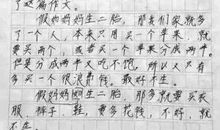 了这篇作文。
假如妈妈生二胎,那我们家就多
了一个人,本来只用买一个苹果,就
要买两个,或者买一个苹果分成两半。
但是分成两半又吃不饱,所以又只有
多买一个很浪费钱,最好不生。
假如妈妈生二胎,那多就要买衣
服、裤子、鞋,要多花钱,不好,就
不生